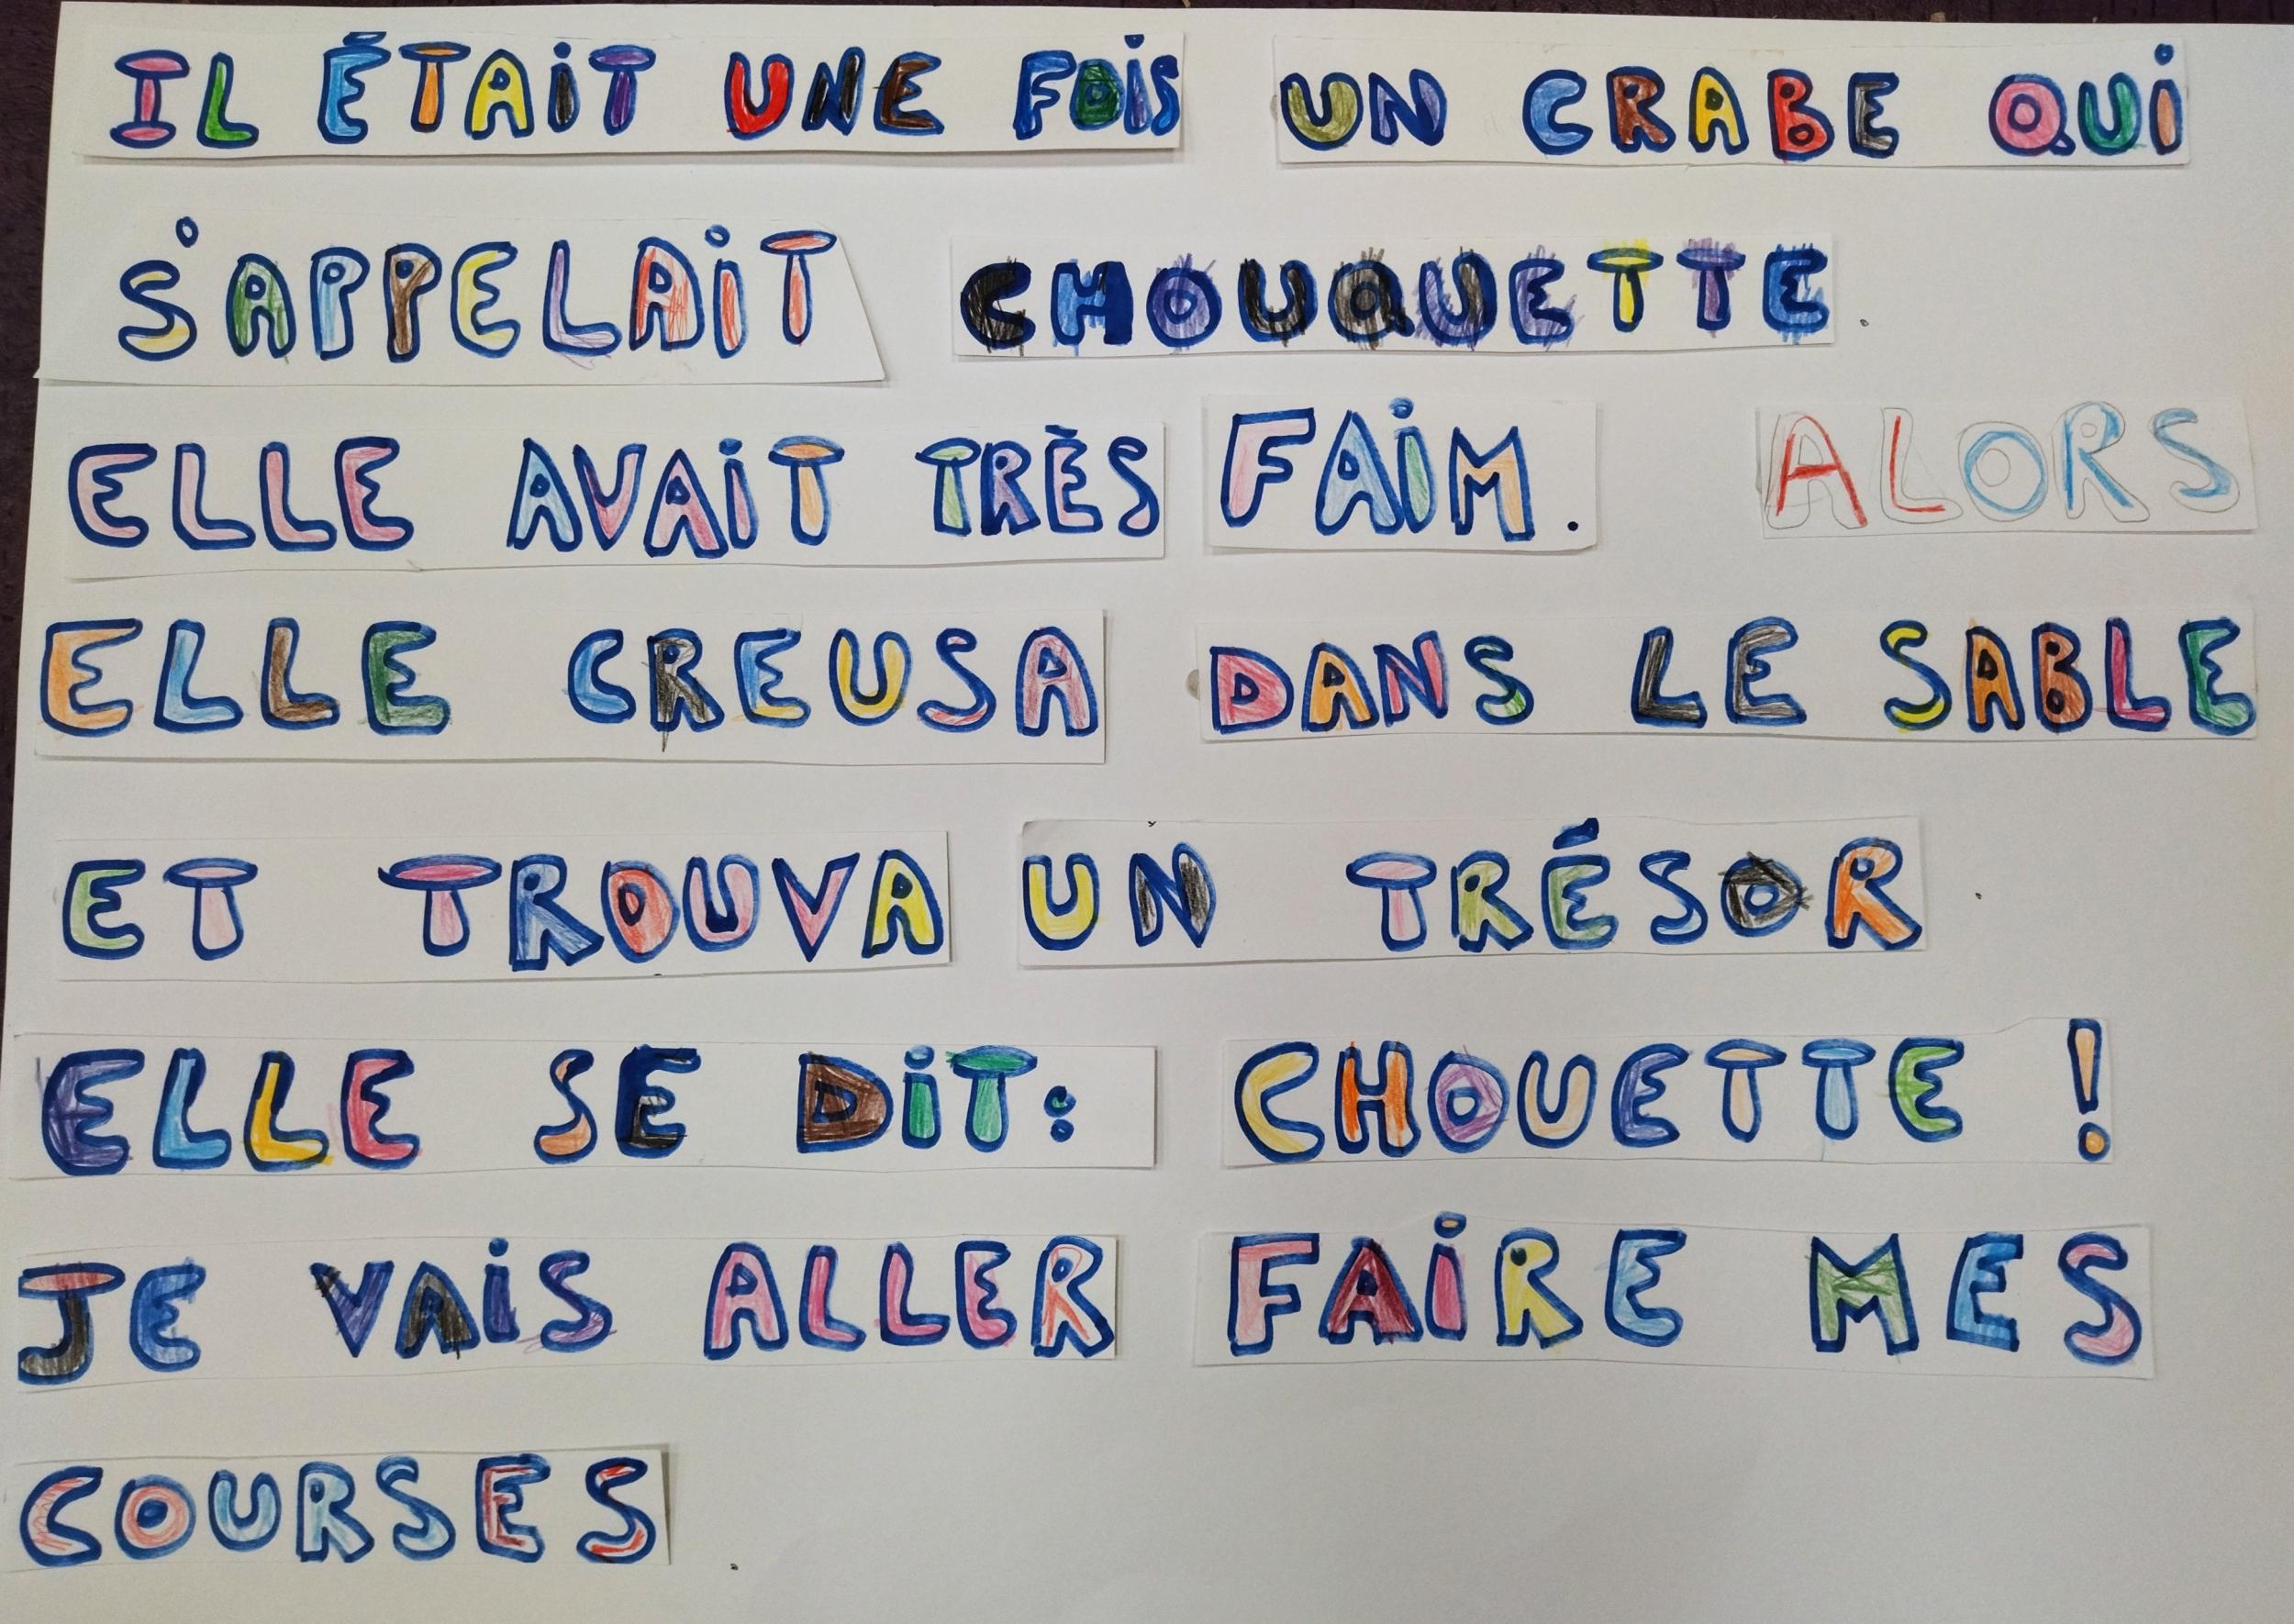 IL ÉTAIT UNE FOIS UN CRABE QUI
S'APPELAIT CHOUQUETTE.
ELLE AVAIT TRÈS FAIM. ALORS
ELLE CREUSA DANS LE SABLE
ET TROUVA UN TRÉSOR.
ELLE SE DIT: CHOUETTE !
JE VAIS ALLER FAIRE MES
COURSES.